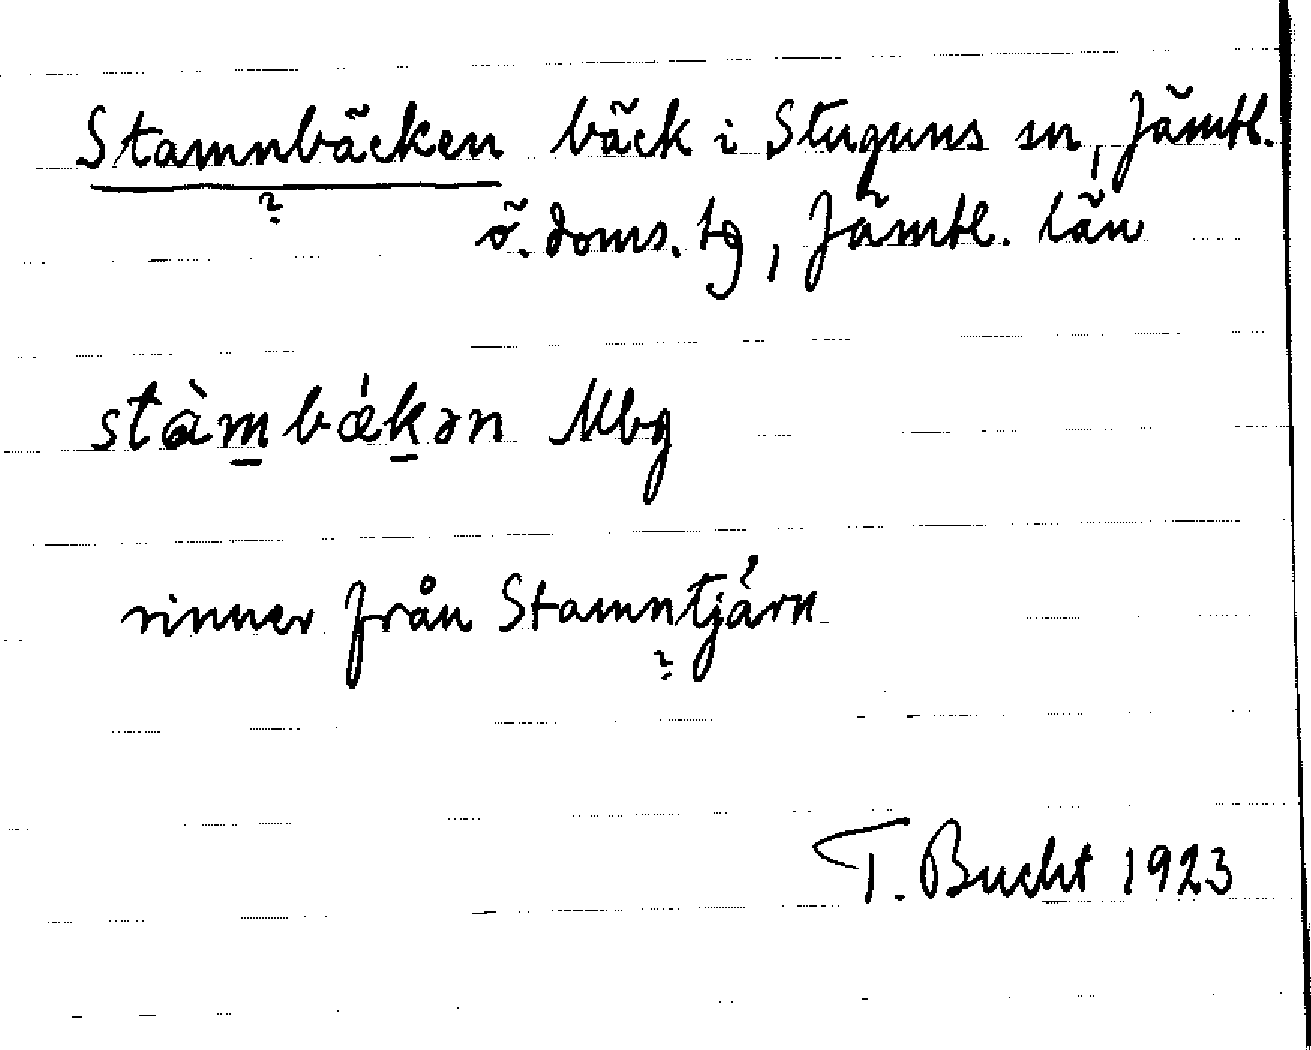 Stamnbäcken bäck i Stuguns sn, Jämtl.
?
ö. doms. tg, Jämtl. län
stàm̲bǽk̲ən Mbg
rinner från Stamntjärn
?
T. Bucht 1923